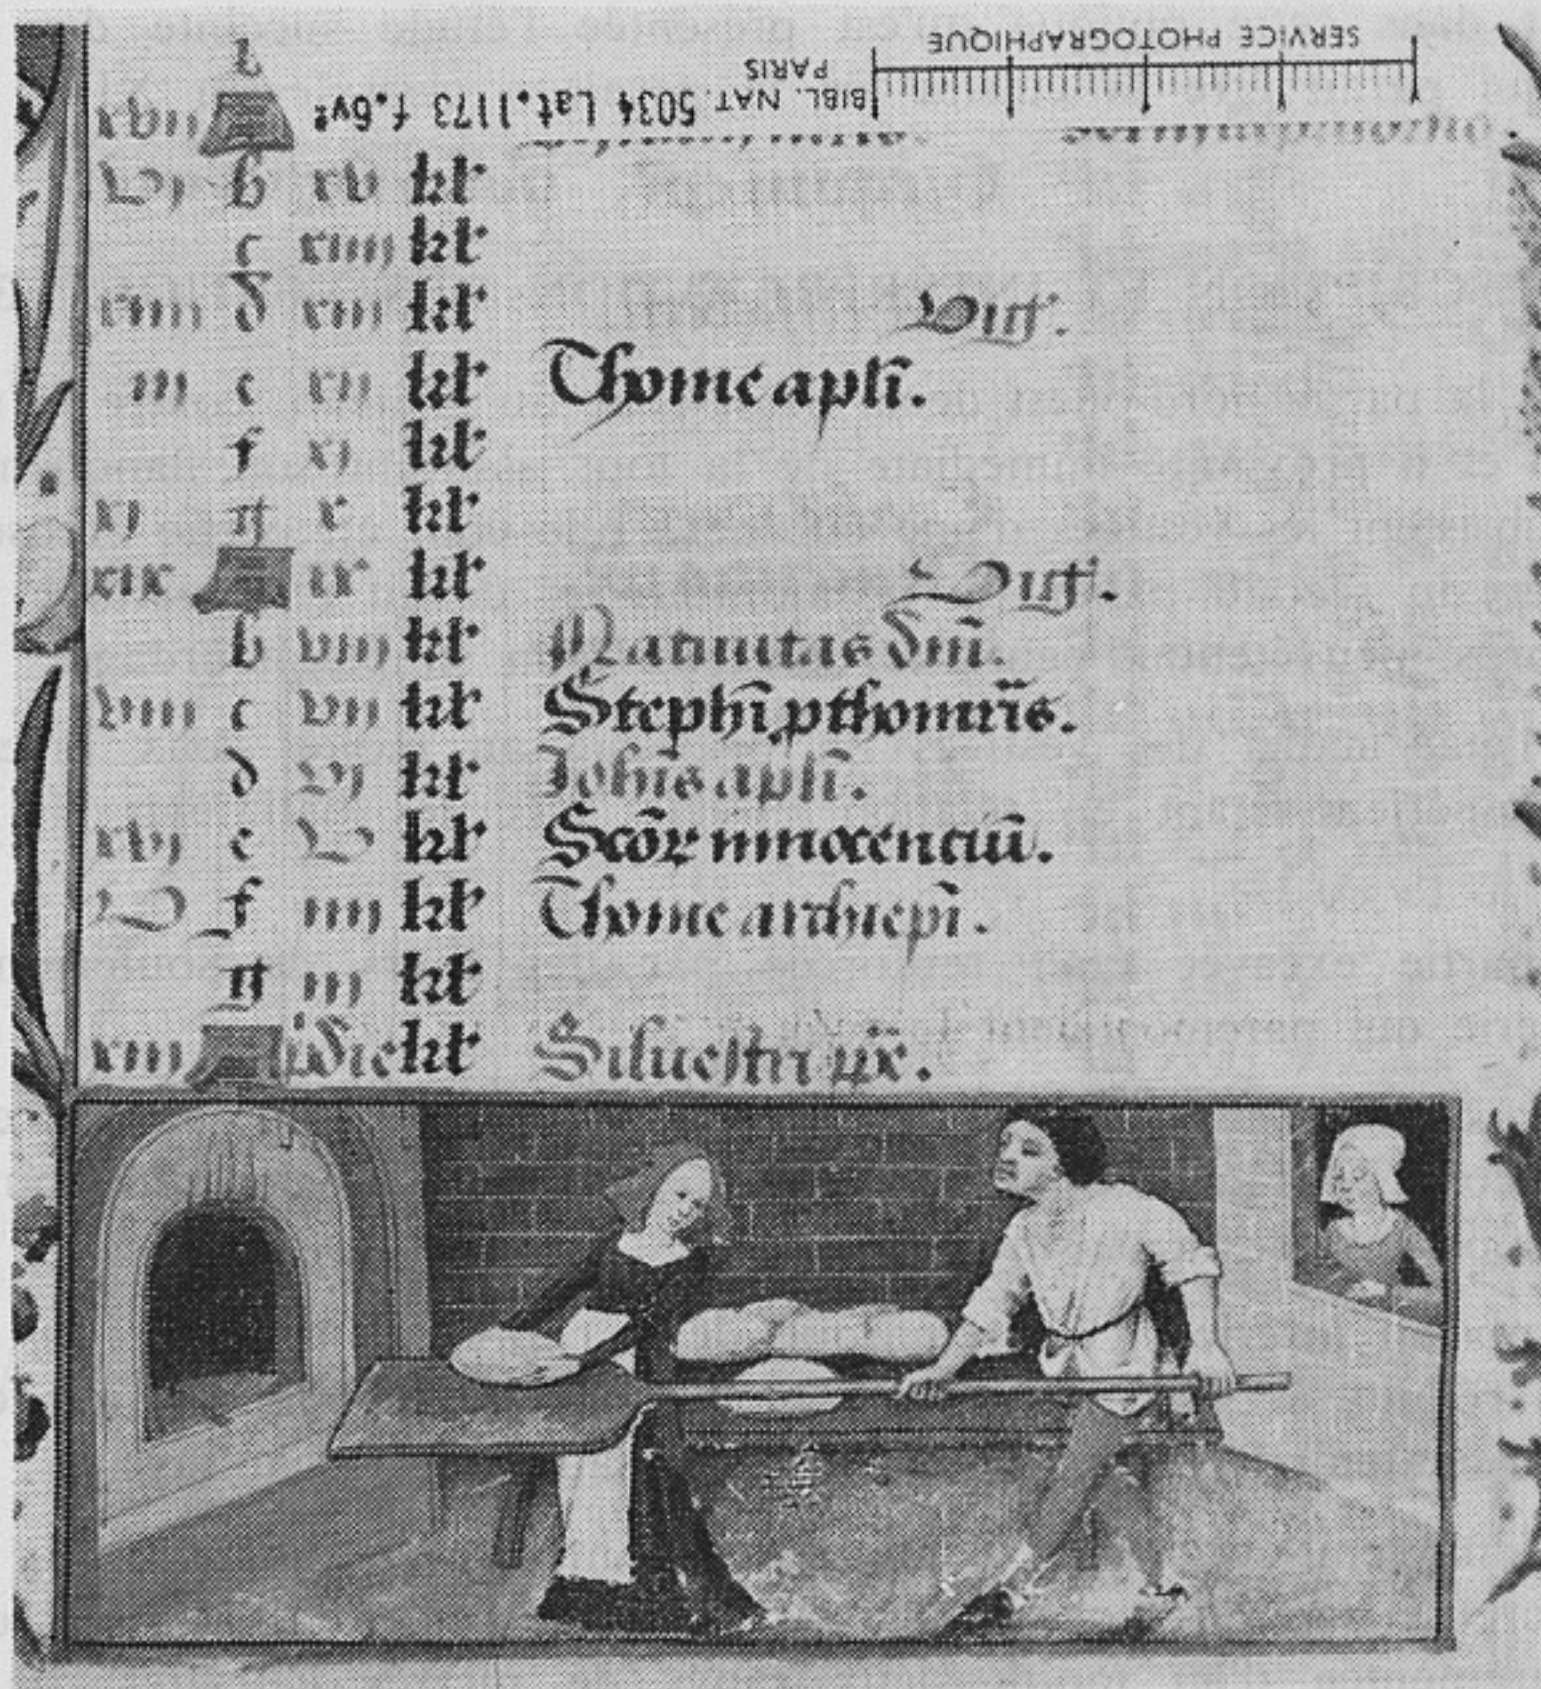 SERVICE PHOTOGRAPHIQUE
BIBL. NAT. PARIS 5034 Lat.1173 f.6vº
xvii A
vj b xv kl'
c xiiij kl'
xiiij d xiij kl' Vigl'.
iij e xij kl' Thome apl̄i.
f xj kl'
xj g x kl'
xix A ix kl' Vigl'.
b viij kl' Natiuitas dn̄i.
viij c vij kl' Stephī pthomr̄is.
d vj kl' Joh̄is apl̄i.
xvj e v kl' Sc̄or innocenciū.
v f iiij kl' Thome archiep̄i.
g iij kl'
xiij A pridie kl' Siluestri px̄.